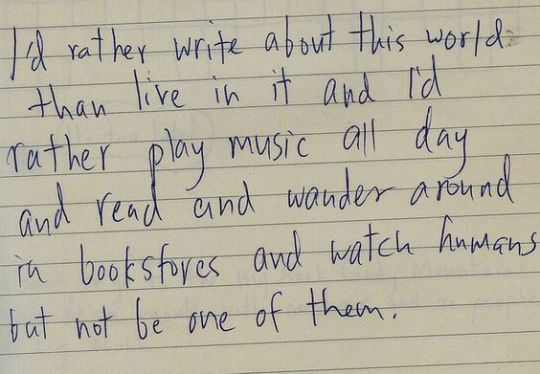 I'd rather write about this world
than live in it and I'd
rather play music all day
and read and wander around
in bookstores and watch humans
but not be one of them.